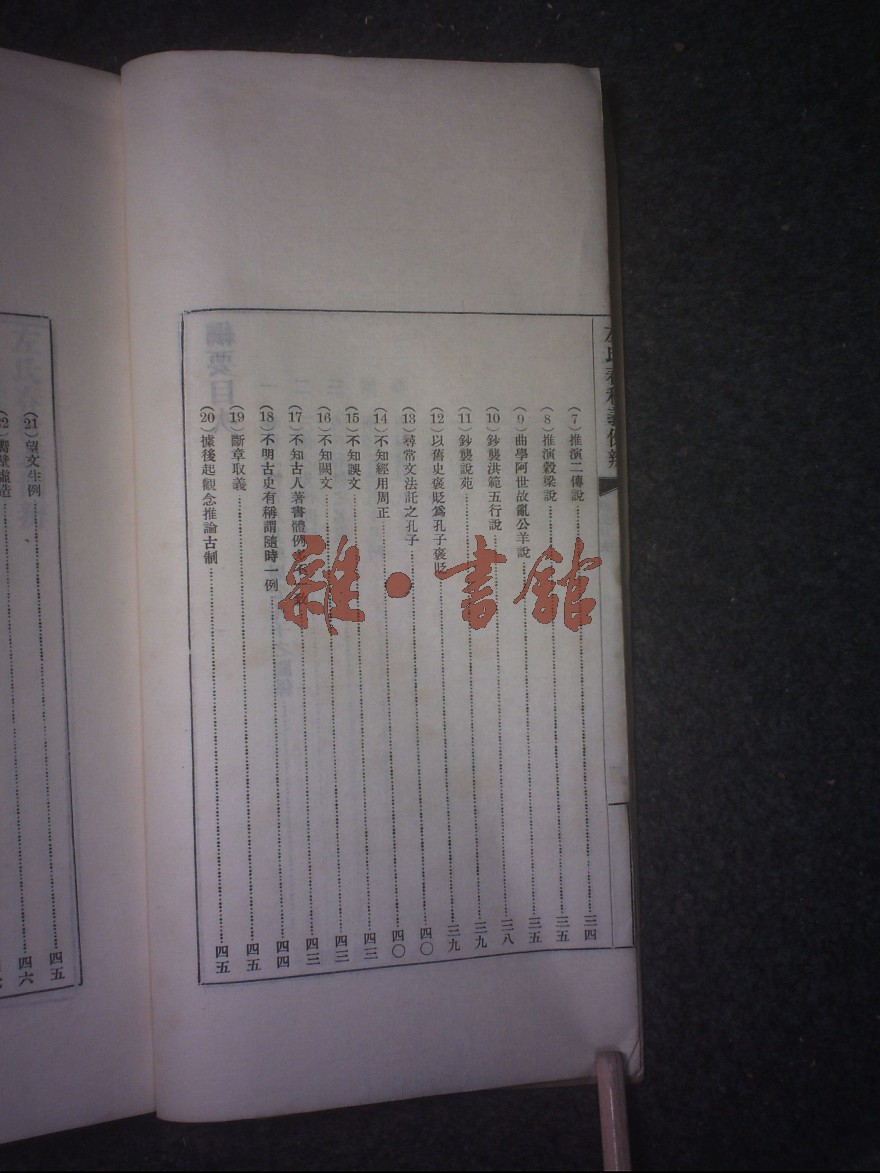 左氏春秋義例辨
(7)推演二傳說……三四
(8)推演穀梁說……三五
(9)曲學阿世故亂公羊說……三五
(10)鈔襲洪範五行說……三八
(11)鈔襲說苑……三九
(12)以舊史褒貶爲孔子褒貶……四〇
(13)尋常文法託之孔子……四〇
(14)不知經用周正……四三
(15)不知誤文……四三
(16)不知闕文……四三
(17)不知古人著書體例
(18)不明古史有稱謂隨時一例……四四
(19)斷章取義……四五
(20)據後起觀念推論古制……四五
(21)望文生例……四五
四六
雜·書館